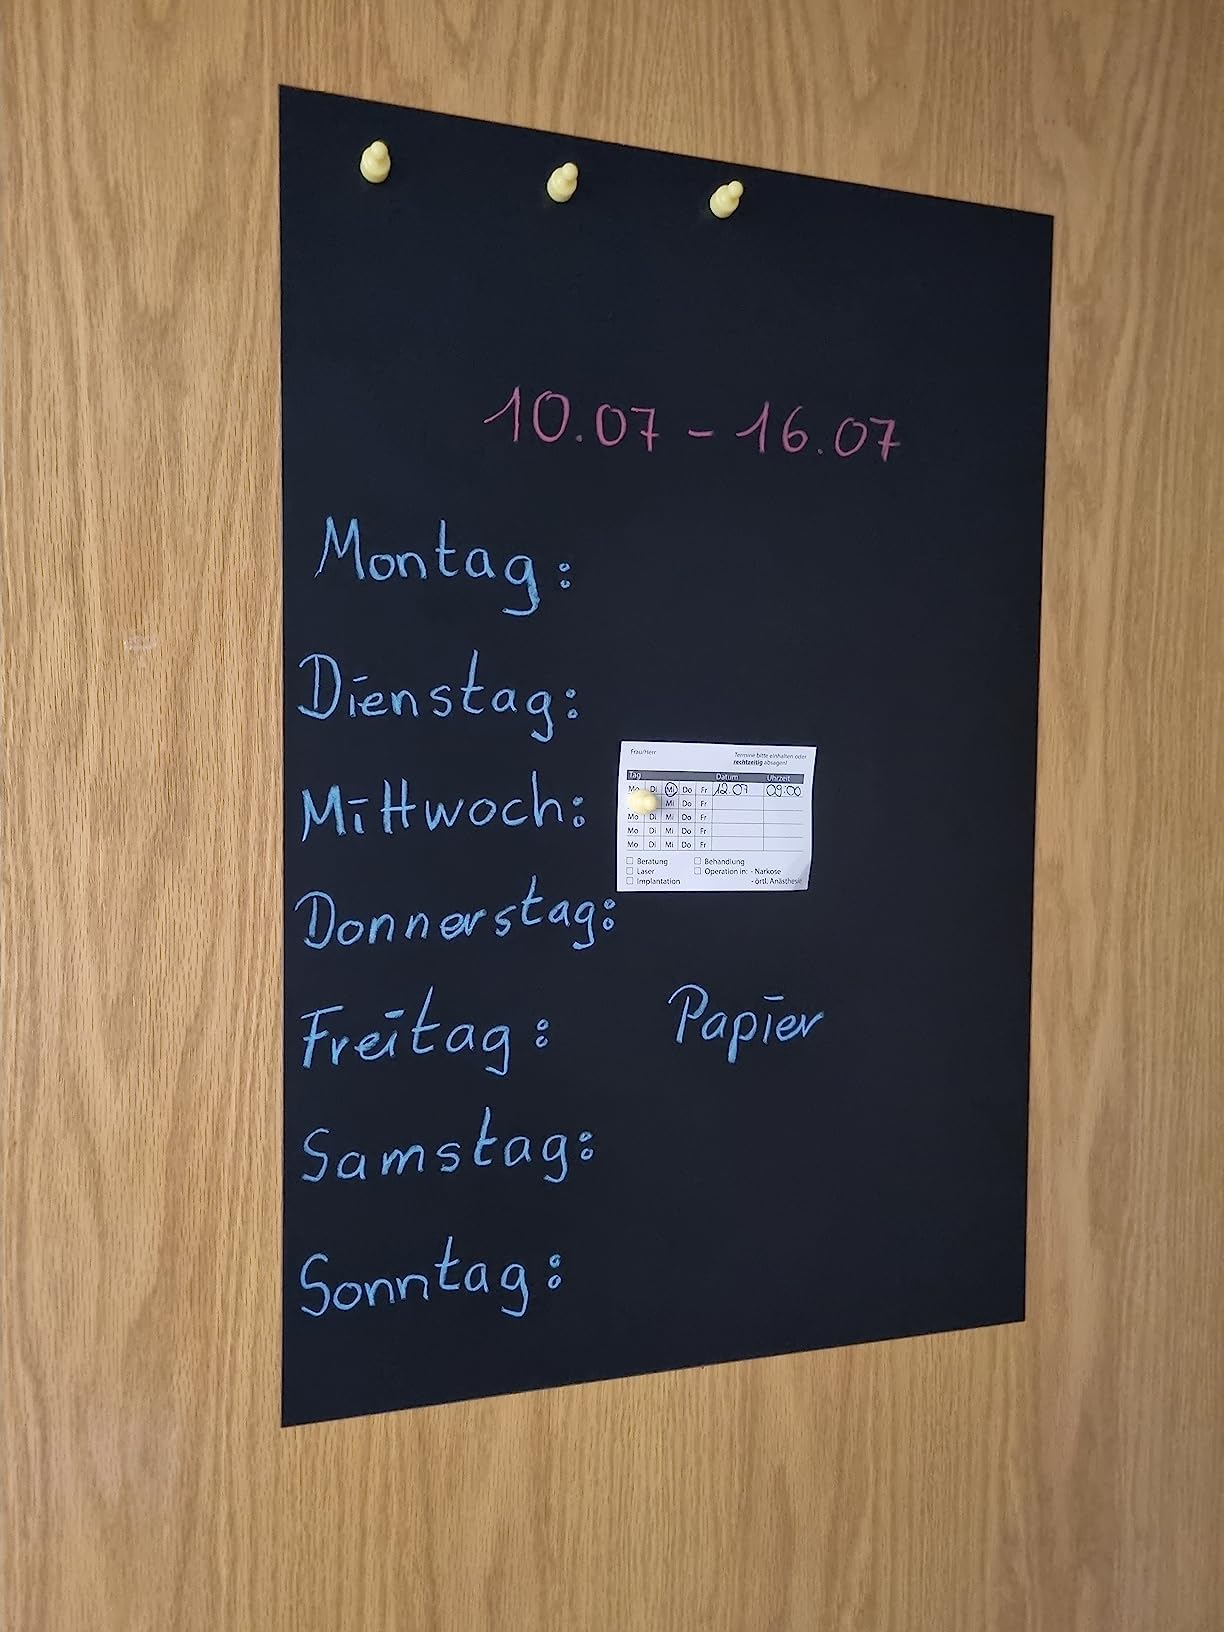 10.07 - 16.07
Montag:
Dienstag:
Mittwoch:
Frau/Herr
Termine bitte einhalten oder
rechtzeitig absagen!
Tag Datum Uhrzeit
Mo Di Mi Do Fr 12.07 09:00
Mi Do Fr
Mo Di Mi Do Fr
Mo Di Mi Do Fr
Mo Di Mi Do Fr
Beratung Behandlung
Laser Operation in: - Narkose
Implantation - örtl. Anästhesie
Donnerstag:
Freitag: Papier
Samstag:
Sonntag: